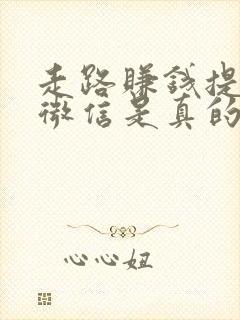 走路赚钱提
微信是真的
心心妞